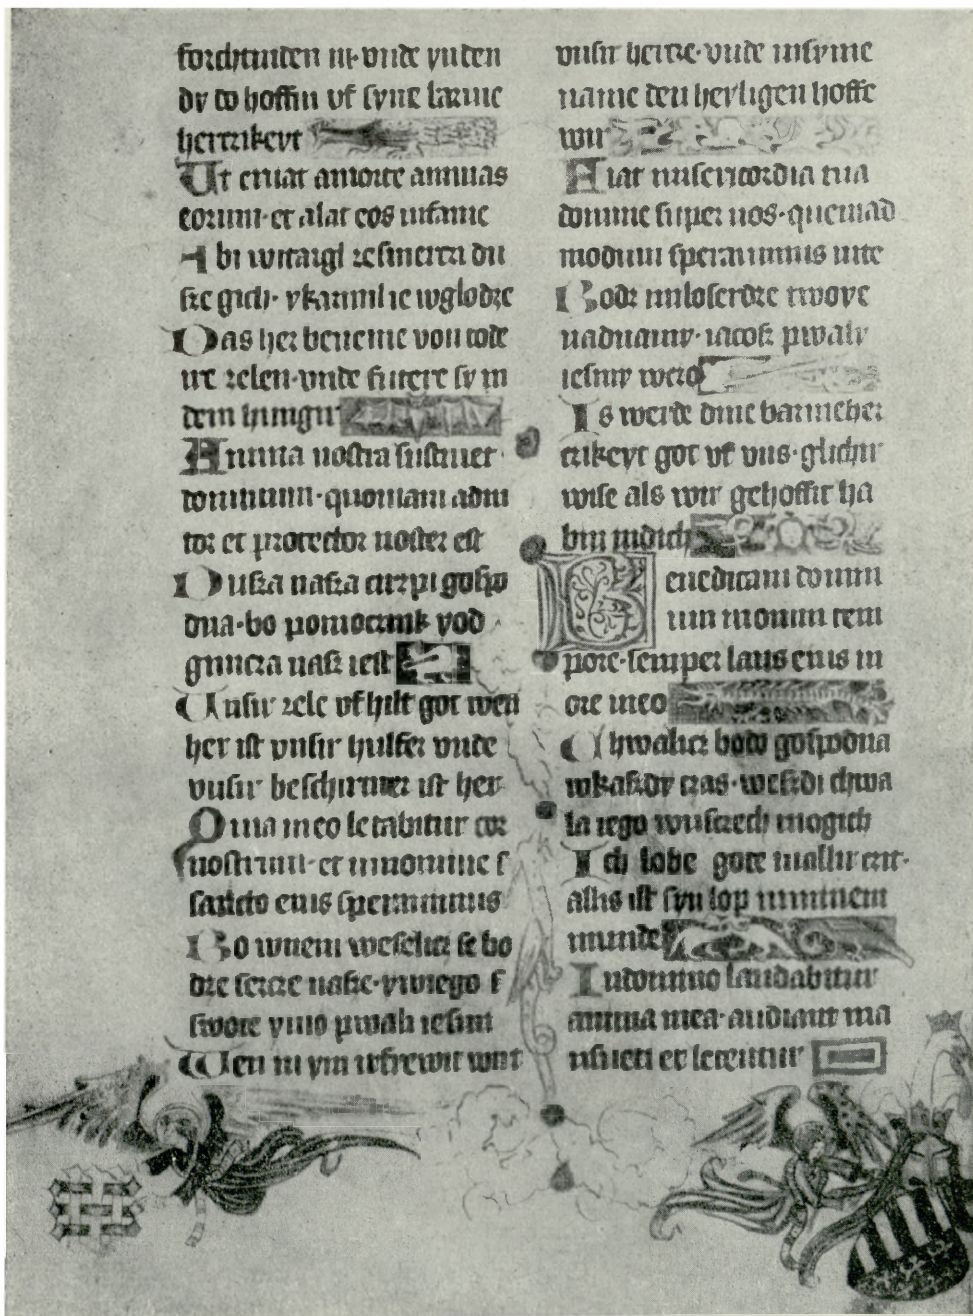 forchtinden in· vnde yn den
dy do hoffin vf syne barme
herczikeyt
Ut eruat amorte animas
eorum· et alat eos infame
Abi witargl zesmerci du
sze gich· ykarmil ie wglodze
Das her beneme von tode
ire zelen· vnde futere sy in
dem hungir
Anima nostra sustinet
dominum· quoniam adiu
tor et protector noster est
Dusza nasza cirzpi gospo
dna· bo pomocznik yod
gimcza nasz iest
Unsir zele vfhilt got wen
her ist vnsir hulfer vnde
vnsir beschirmer ist her
Quia in eo letabitur cor
nostrum· et innomine s
sancto eius sperauimus
Bo wniem weselicz se bo
dze sercze nasze· ywiego s
swote ymo pwali iesmi
Wen in ym irfrewit wirt
vnsir hercze· vnde insyme
name den heyligen hoffe
wir
Fiat misericordia tua
domine super nos· quemad
modum sperauimus inte
Bodz miloserdze twoye
nadnamy· iacosz pwaly
iesmy wcz
Is werde dine barmeher
czikeyt got vf vns· glichir
wise als wir gehoffit ha
bin indich
Benedicam domi
num in omni tem
pore· semper laus eius in
ore meo
Chwalicz bodo gospodna
wkaszdy czas· weszdi chwa
la iego wusczech mogich
Ich lobe gote inallir czit·
allis ist syn lop in minem
munde
Indomino laudabitur
anima mea· audiant ma
nsueti et letentur